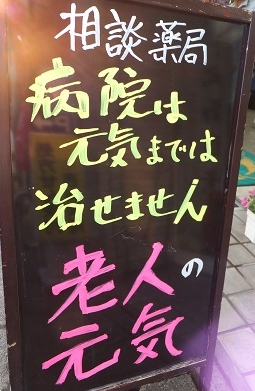 相談薬局
病院は
元気までは
治せません
老人の
元気